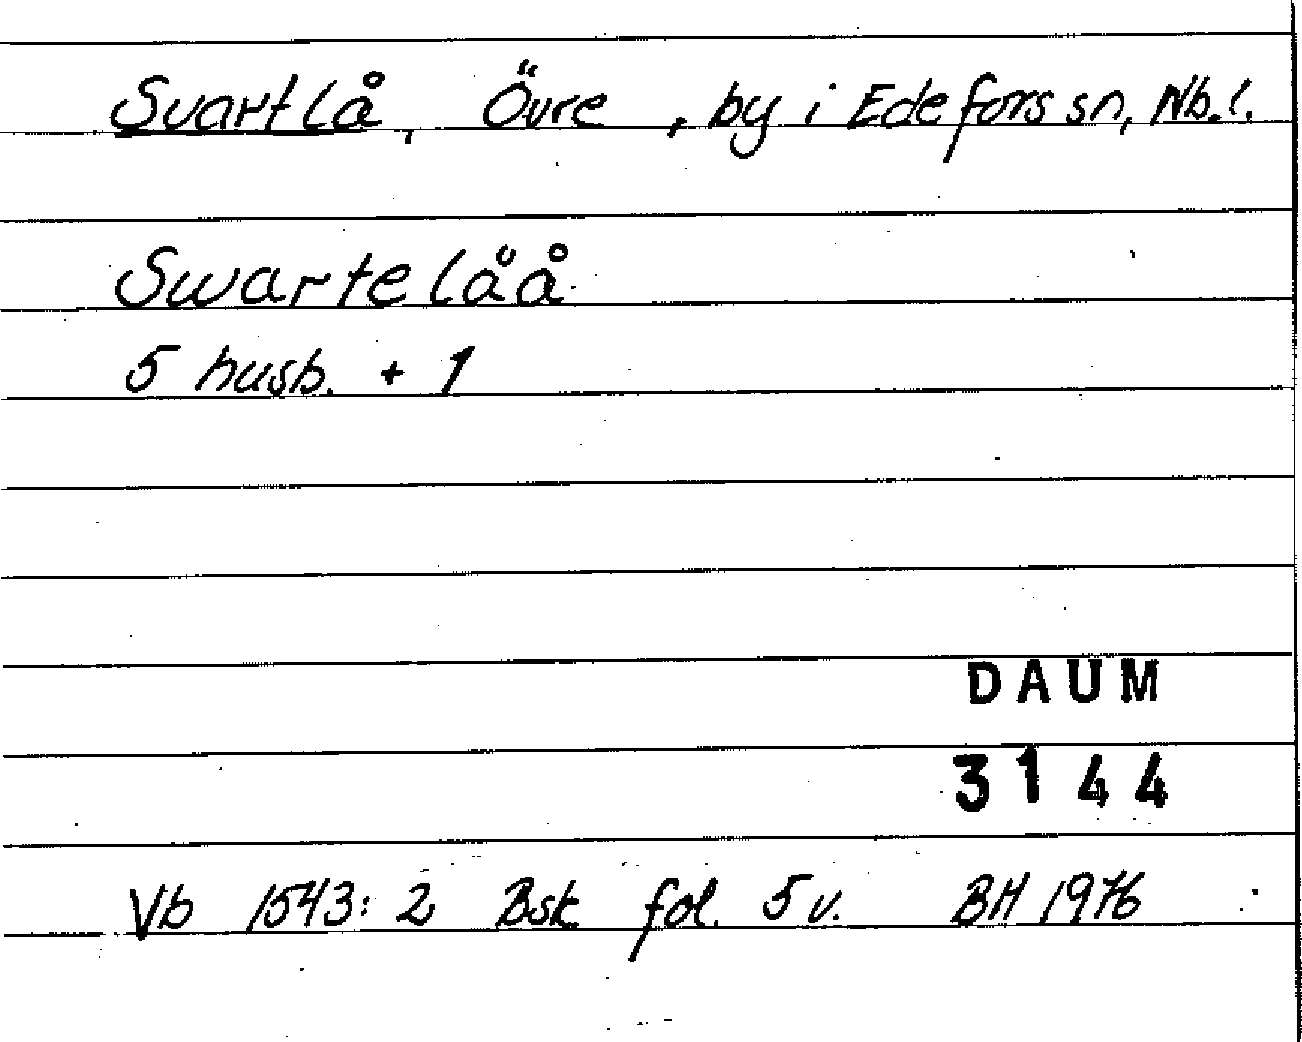 Svartlå, Övre, by i Edefors sn, Nb.l.
Swartelåå
5 husb. + 1
DAUM
3144
Vb 1543: 2 Bsk fol. 5 v. BH 1976